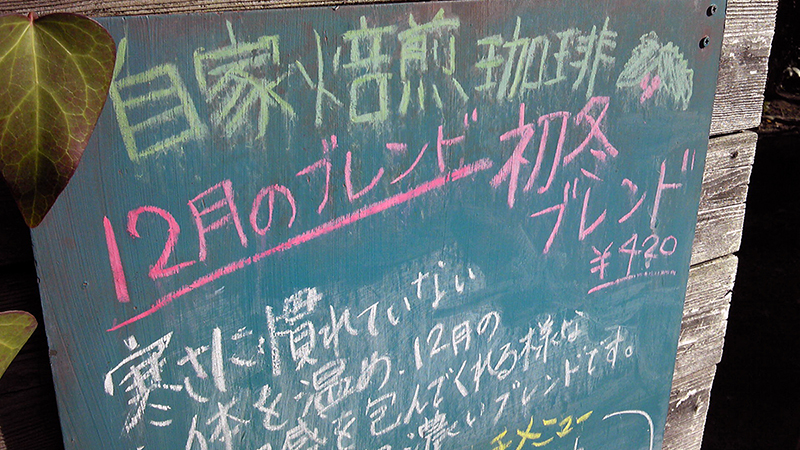 自家焙煎珈琲
12月のブレンド
初冬
ブレンド
¥420
寒さに慣れていない
体を温め、12月の
感を包んでくれる様な
濃いブレンドです。
メニュー